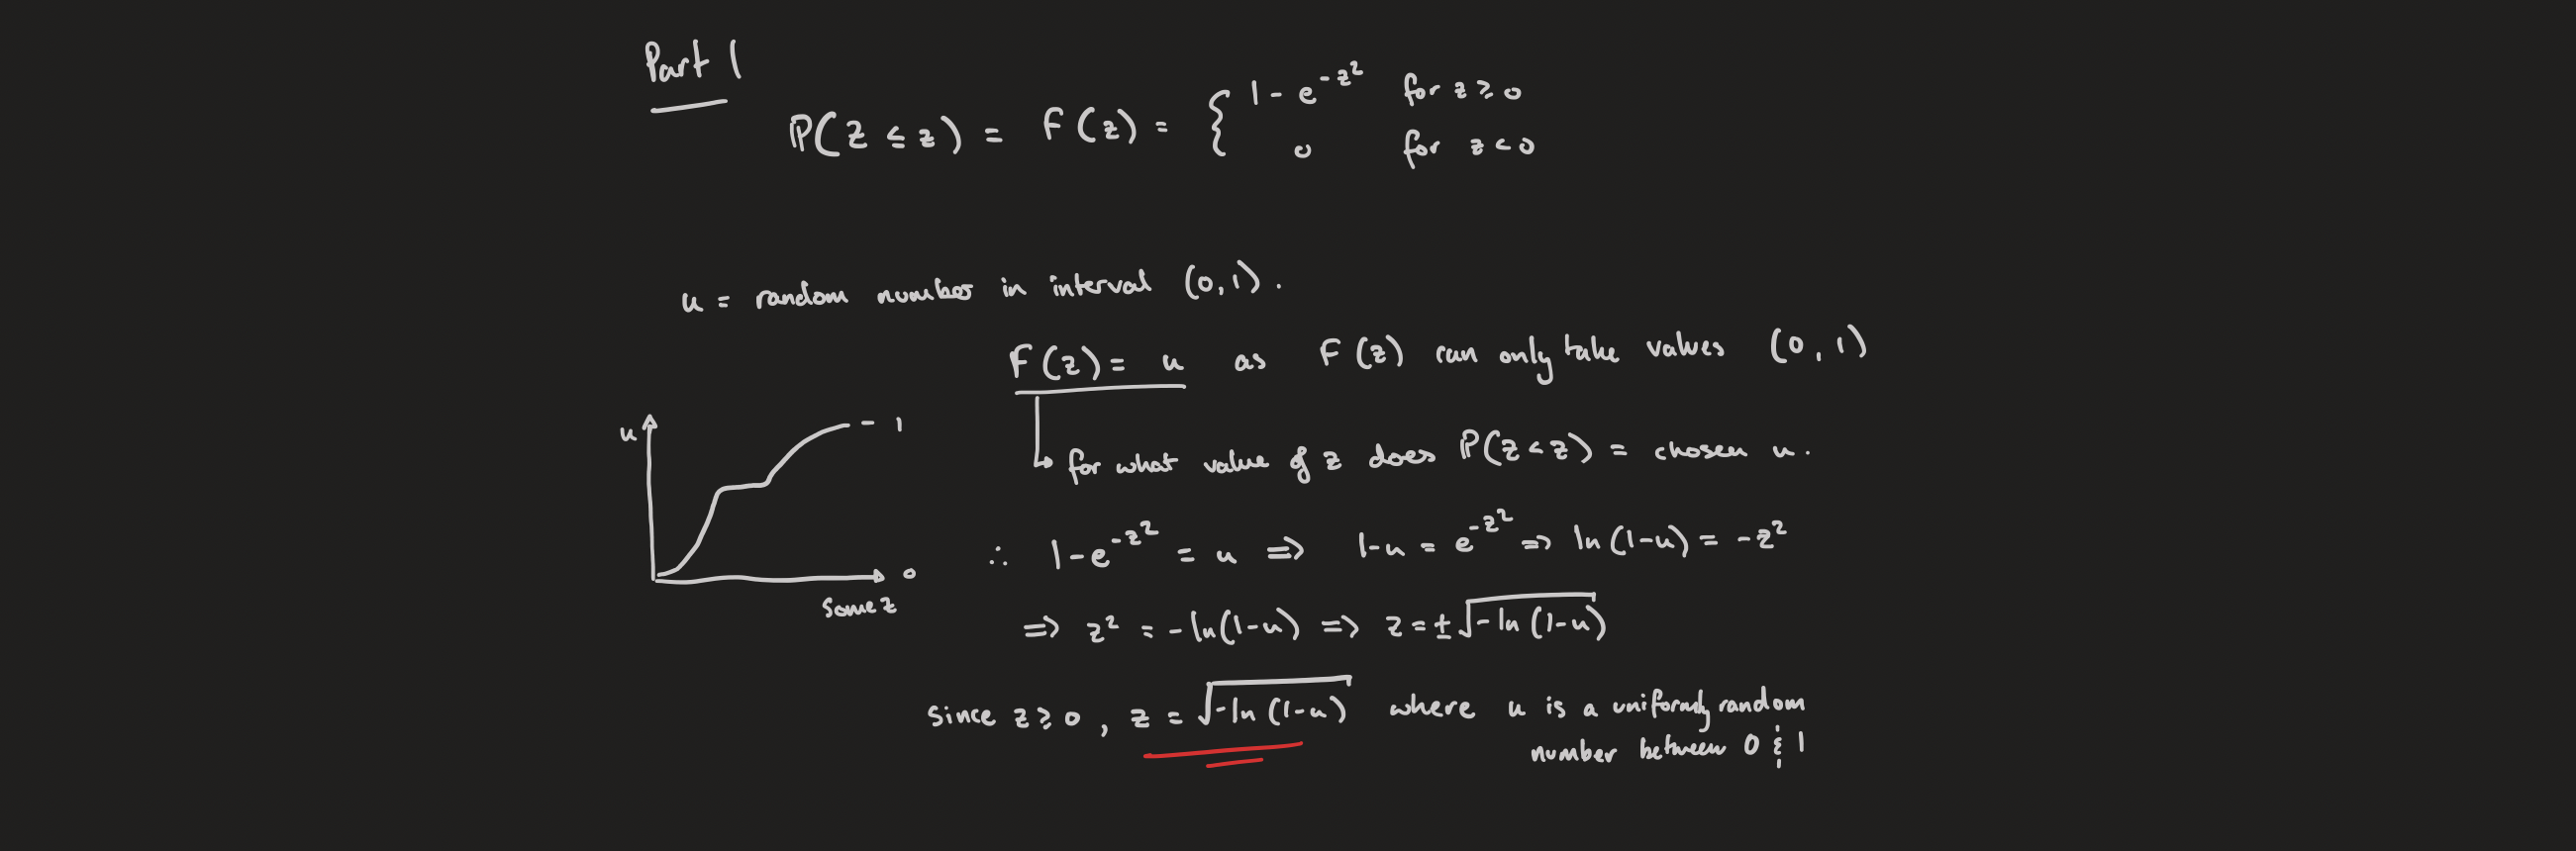 Part 1
ℙ(Z ≤ z) = F(z) = { 1 - e^{-z²} for z ≥ 0
0 for z < 0
u = random number in interval (0,1).
F(z) = u as F(z) can only take values (0,1)
↳ for what value of z does ℙ(Z < z) = chosen u.
u
- 1
0
some z
∴ 1 - e^{-z²} = u ⇒ 1-u = e^{-z²} ⇒ ln(1-u) = -z²
⇒ z² = -ln(1-u) ⇒ z = ±√(-ln(1-u))
Since z ≥ 0, z = √(-ln(1-u)) where u is a uniformly random
number between 0 & 1